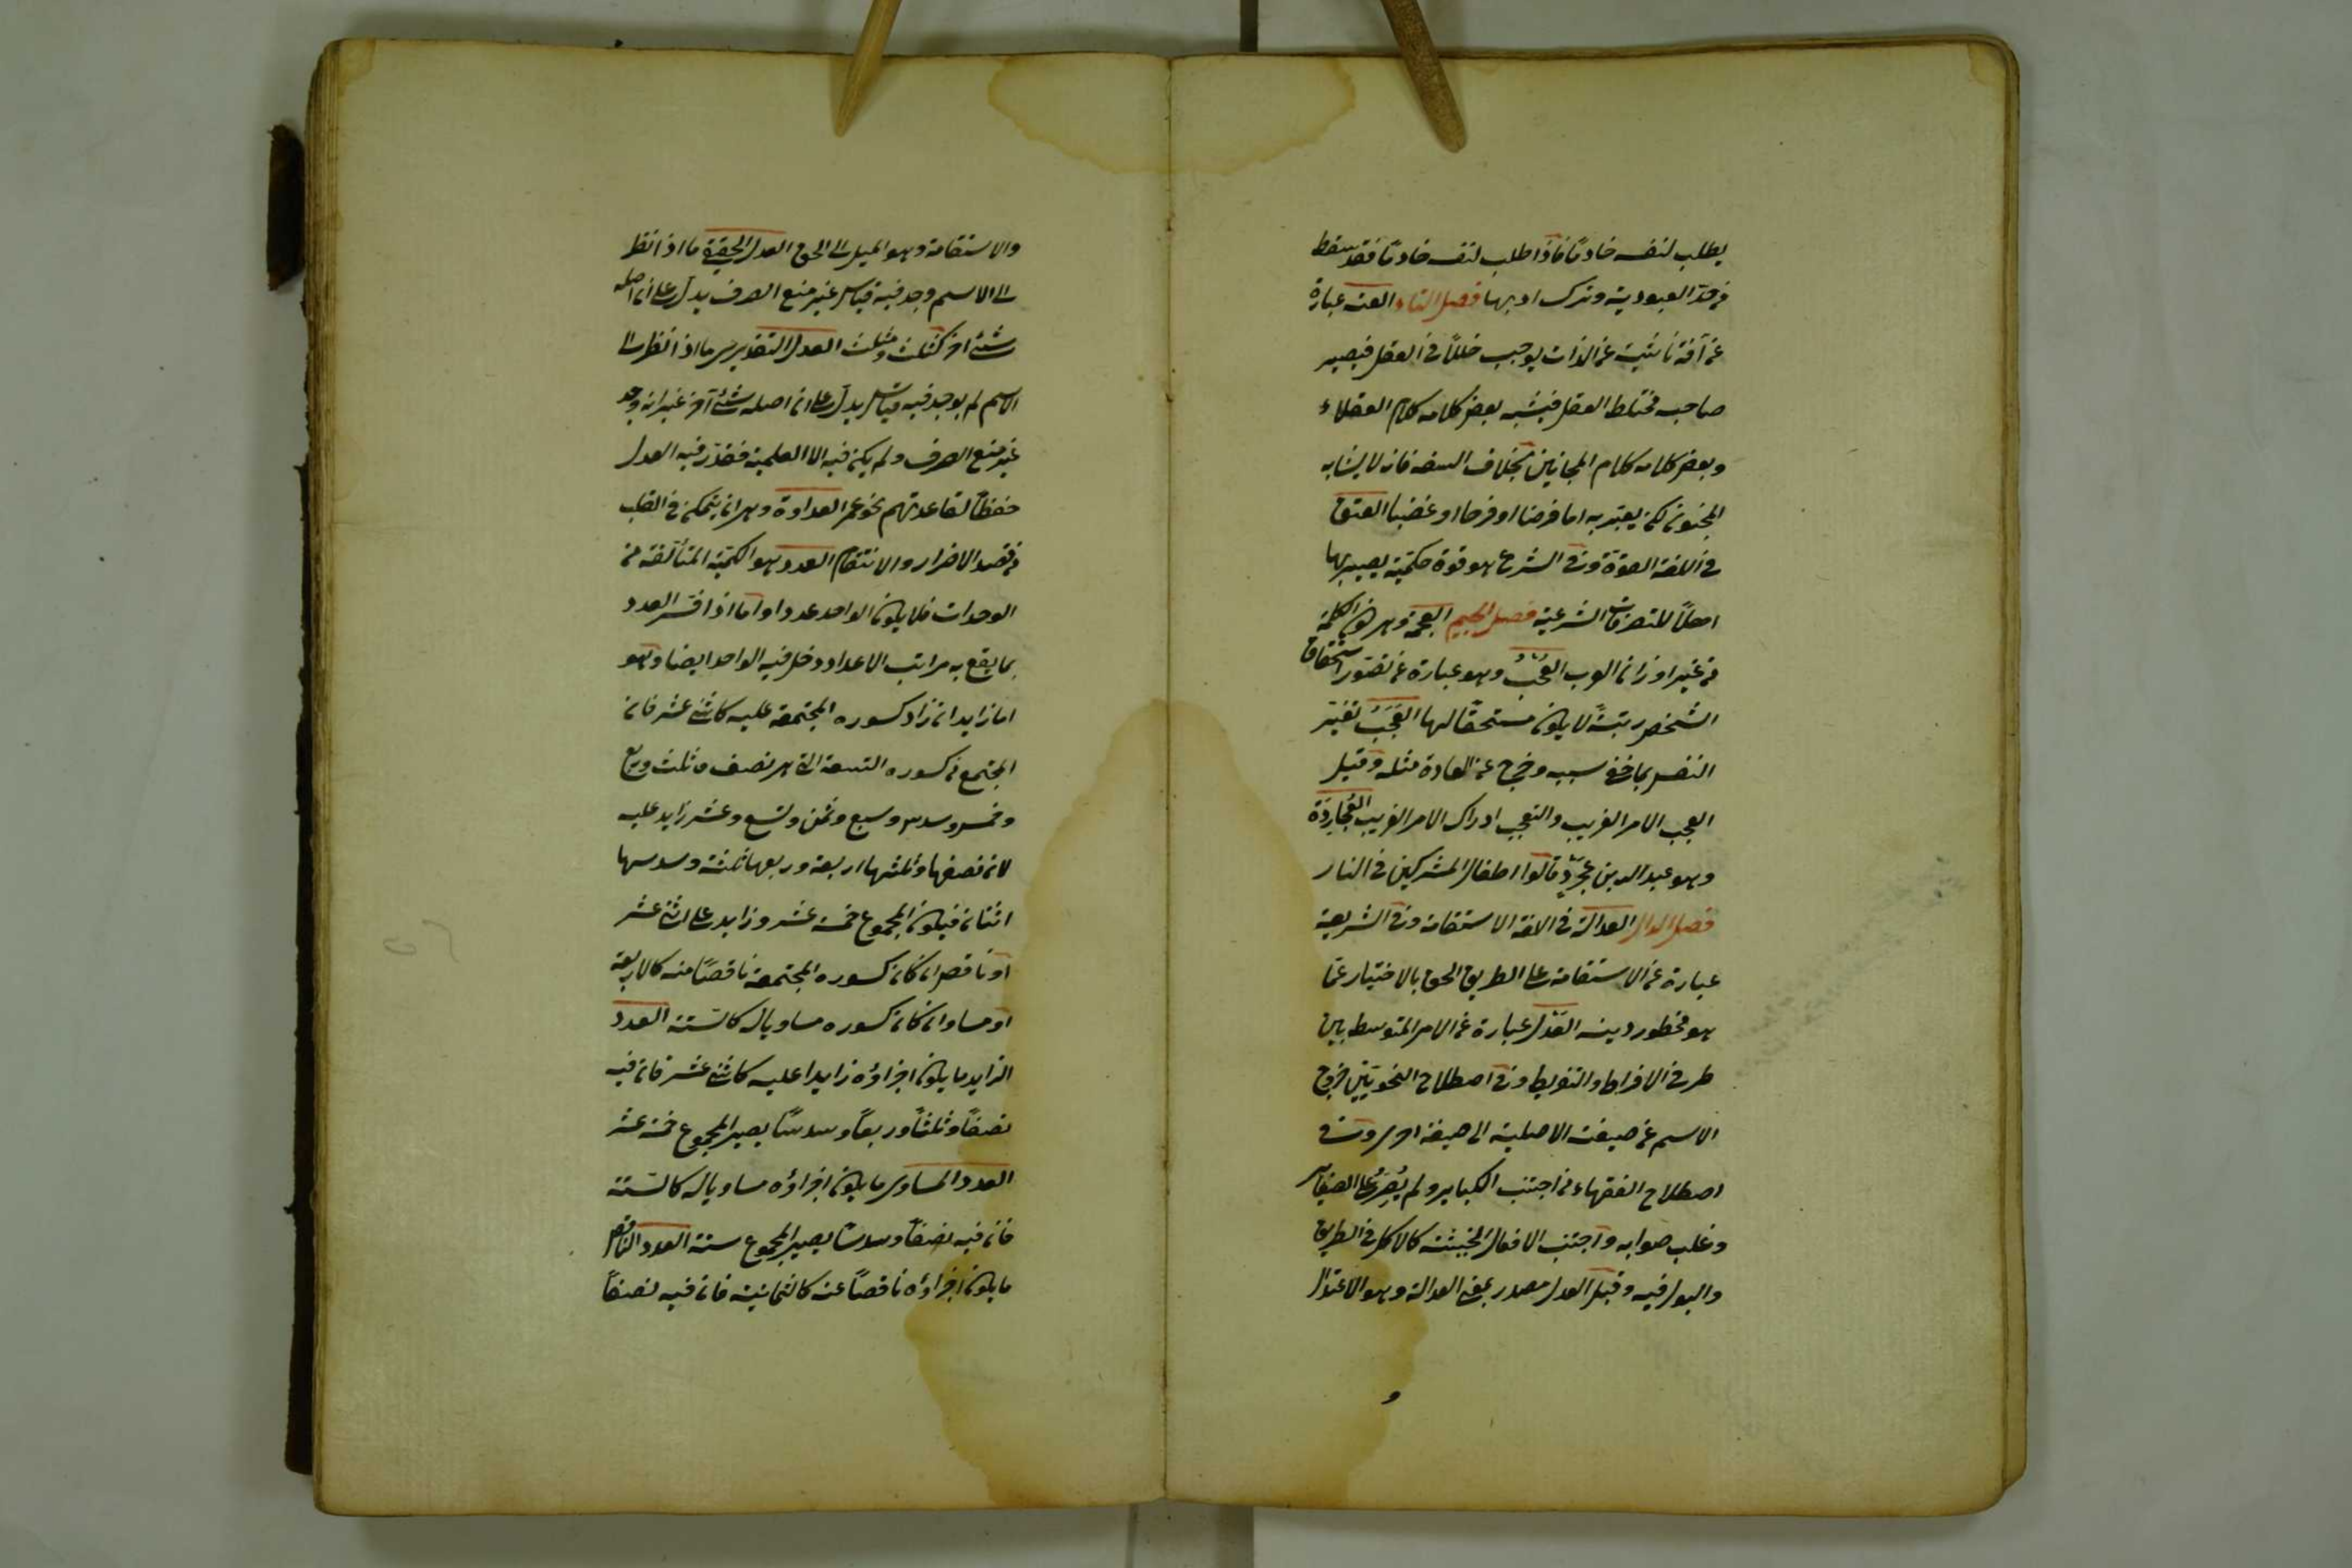 يطلب لنفسه خادمًا فاذا طلب لنفسه خادمًا فقد سقط
من حدّ العبودية وترك ادبها فصل التاء العته عبارة
عن آفة ناشئية عن الذات يوجب خللًا في العقل فيصير
صاحبه مختلط العقل فيشبه بعض كلامه كلام العقلاء
وبعض كلامه كلام المجانين بخلاف السفه فانه لا يشابه
المجنون لكن يعتبر به اما فرضا او فرحا او غضبا العتق
في اللغة القوّة وفي الشرع هو قوة حكمية يصير بها
اهلًا للتصرفات الشرعية فصل الجيم العجمة وهي كون الكلمة
من غير اوزان العرب العُجْبُ وهو عبارة عن تصوّر استحقاق
الشخص رتبةً لا يكون مستحقًا لها العَجَبُ تغيّر
النفس بما خفي سببه وخرج عن العادة مثله وقيل
العجب الامر الغريب والتعجب ادراك الامر الغريب العُجَارِدَة
وهو عبد الله بن عجرّد قالوا اطفال المشركين في النار
فصل الدال العدالة في اللغة الاستقامة وفي الشريعة
عبارة عن الاستقامة على الطريق الحق بالاختيار عمّا
هو محظور دينه العَدْل عبارة عن الامر المتوسط بين
طرفي الافراط والتفريط وفي اصطلاح النحويّين خروج
الاسم عن صيغته الاصلية الى صيغة اخرى وفي
اصطلاح الفقهاء من اجتنب الكباير ولم يُصِرّ على الصغاير
وغلب صوابه واجتنب الافعال الخسيسة كالاكل في الطريق
والبول فيه وقيل العدل مصدر بمعنى العدالة وهو الاعتدال
و
والاستقامة وهو الميل الى الحق العدل الحقيقي ما اذا نظر
الى الاسم وجد فيه قياس غير منع الصرف يدلّ على ان اصله
شئ اخر كثلث ومثلث العدل التقديري ما اذا نظر الى
الاسم لم يوجد فيه قياس يدلّ على ان اصله شئ آخر غير انه وجد
غير منع الصرف ولم يكن فيه الا العلمية فقدّر فيه العدل
حفظًا لقاعدتهم نحو عمر العداوة وهي ان يتمكن في القلب
من قصد الاضرار والانتقام العدد هو الكمية المتألفة من
الوحدات فلا يكون الواحد عددا واما اذا فسّر العدد
بما يقع به مراتب الاعداد دخل فيه الواحد ايضا وهو
اما زايد ان زاد كسوره المجتمعة عليه كاثني عشر فان
المجتمع من كسوره التسعة التي هي نصف وثلث وربع
وخمس وسدس وسبع وثمن وتسع وعشر زايد عليه
لان نصفها وثلثها اربعة وربعها ثلثة وسدسها
اثنان فيكون المجموع خمسة عشر وزايد على اثني عشر
او ناقص ان كان كسوره المجتمعة ناقصًا منه كالاربعة
او مساو ان كان كسوره مساويا له كالستّة العدد
الزايد ما يكون اجزاؤه زايدا عليه كاثني عشر فان فيه
نصفًا وثلثًا وربعًا وسدسًا يصير المجموع خمسة عشر
العدد المساوى ما يكون اجزاؤه مساويا له كالستّة
فان فيه نصفًا وسدسًا يصير المجموع ستة العدد الناقص
ما يكون اجزاؤه ناقصًا عنه كالثمانية فان فيه نصفًا